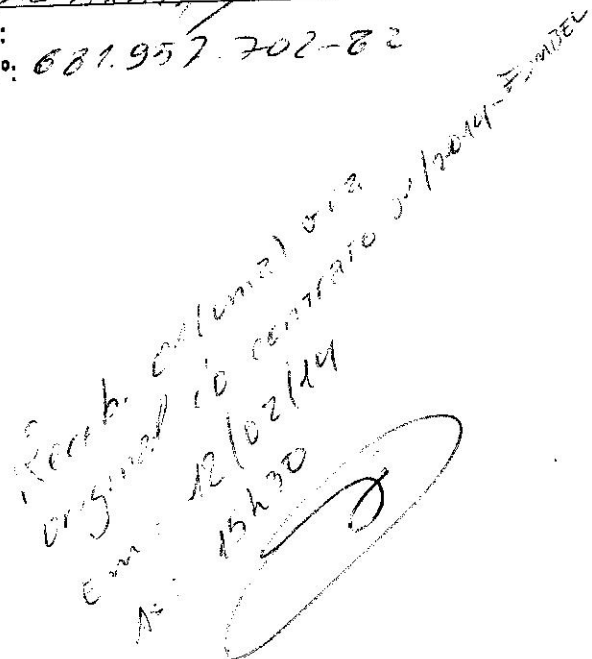 : 681.957.702-82
Receb. 01 (uma) via
original do contrato 01/2014-FUMBEL
Em: 12/02/14
às: 15h30